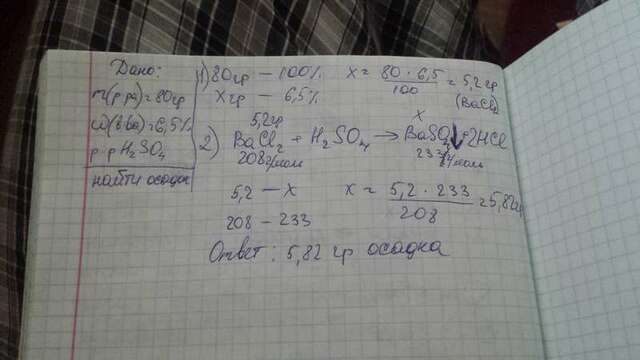 Дано:
m(р-ра)=80гр
ω(в-ва)=6,5%
р-р H₂SO₄
найти осадок
1) 80гр — 100%
xгр — 6,5%
x = 80 · 6,5 / 100 = 5,2гр
(BaCl₂)
5,2гр x
2) BaCl₂ + H₂SO₄ → BaSO₄↓+2HCl
208г/моль 233г/моль
5,2 — x
208 — 233
x = 5,2 · 233 / 208 = 5,82гр
Ответ: 5,82 гр осадка